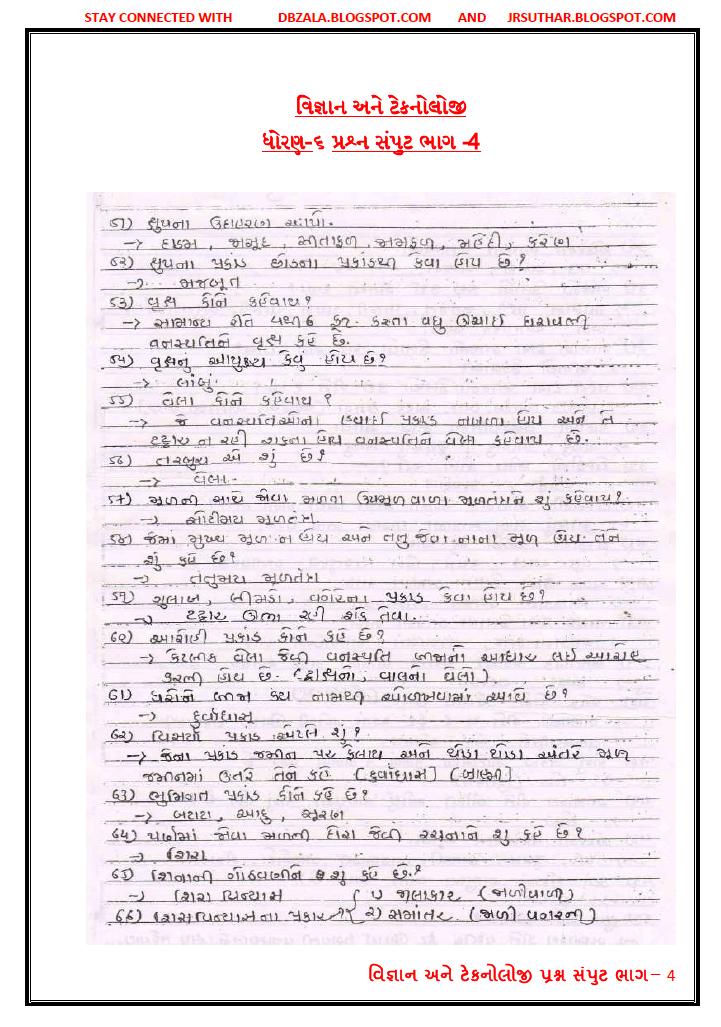 STAY CONNECTED WITH DBZALA.BLOGSPOT.COM AND JRSUTHAR.BLOGSPOT.COM
વિજ્ઞાન અને ટેકનોલોજી
ધોરણ-૬ પ્રશ્ન સંપુટ ભાગ -4
૫૧) ક્ષુપના ઉદાહરણ આપો.
→ દાડમ, જાસૂદ, સીતાફળ, જામફળ, મહેંદી, કરેણ
૫૨) ક્ષુપના પ્રકાંડ છોડના પ્રકાંડથી કેવા હોય છે?
→ મજબૂત
૫૩) વૃક્ષ કોને કહેવાય?
→ સામાન્ય રીતે ૫થી ૬ ફૂટ કરતા વધુ ઊંચાઈ ધરાવતી
વનસ્પતિને વૃક્ષ કહે છે.
૫૪) વૃક્ષનુ આયુષ્ય કેવું હોય છે?
→ લાંબું.
૫૫) વેલા કોને કહેવાય?
→ જે વનસ્પતિઓના પ્રકાંડ નબળા હોય અને તે
ટટ્ટાર ન રહી શકતા હોય વનસ્પતિને વેલા કહેવાય છે.
૫૬) તરબુચ એ શું છે?
→ વેલા.
૫૭) મૂળની સાથે જોવા મળતા ઉપમૂળ વાળા મૂળતંત્રને શું કહેવાય?
→ સોટીમય મૂળતંત્ર.
૫૮) જેમાં મુખ્ય મૂળ ન હોય અને તંતુ જેવા નાના મૂળ હોય તેને
શું કહે છે?
→ તંતુમય મૂળતંત્ર
૫૯) ગુલાબ, લીમડો, વગેરેના પ્રકાંડ કેવા હોય છે?
→ ટટ્ટાર ઊભા રહી શકે તેવા.
૬૦) આરોહી પ્રકાંડ કોને કહે છે?
→ કેટલાક વેલા જેવી વનસ્પતિ બીજાનો આધાર લઈ આરોહણ
કરતી હોય છે. (દ્રાક્ષનો, વાલનો વેલો)
૬૧) ધરોને બીજા કયા નામથી ઓળખવામાં આવે છે?
→ દુર્વાઘાસ
૬૨) વિસર્પી પ્રકાંડ એટલે શું?
→ જેના પ્રકાંડ જમીન પર ફેલાય અને થોડા થોડા અંતરે મૂળ
જમીનમાં ઉતરે તેને કહે (દુર્વાઘાસ) (બ્રાહ્મી)
૬૩) ભુમિગત પ્રકાંડ કોને કહે છે?
→ બટાટા, આદુ, સૂરણ
૬૪) પર્ણમાં જોવા મળતી દોરા જેવી રચનાને શું કહે છે?
→ શિરા
૬૫) શિરાની ગોઠવણીને શું કહે છે.?
→ શિરા વિન્યાસ { ૧) જાલાકાર (જાળીવાળી)
૬૬) શિરાવિન્યાસના પ્રકાર? ૨) સમાંતર (જાળી વગરની)
વિજ્ઞાન અને ટેકનોલોજી પ્રશ્ન સંપુટ ભાગ– 4